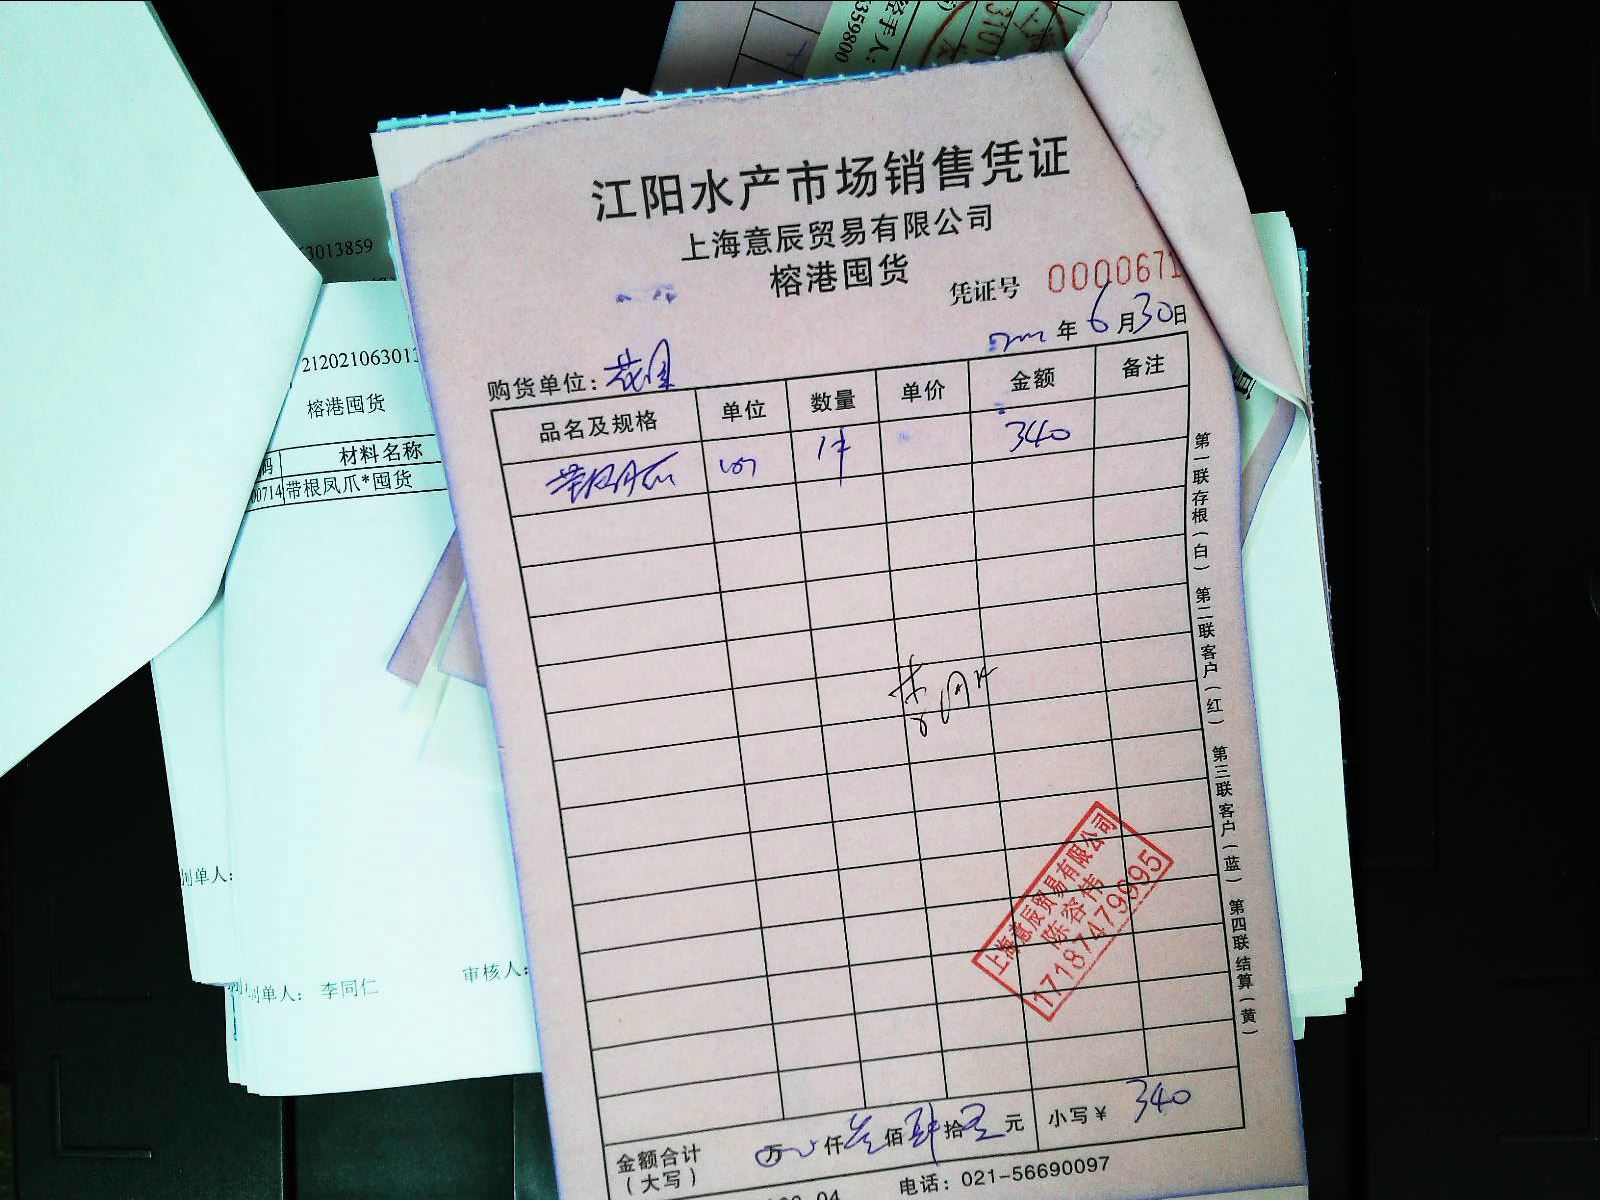 359800
经手人：
江阳水产市场销售凭证
上海意辰贸易有限公司
榕港囤货
凭证号 0000671
年 6 月 30 日
购货单位：
品名及规格 单位 数量 单价 金额 备注
1件 340
第一联存根（白） 第二联客户（红） 第三联客户（蓝） 第四联结算（黄）
上海意辰贸易有限公司
陈容伟
17187479995
金额合计（大写） 万 仟 叁 佰 肆 拾 元 小写￥ 340
电话：021-56690097
63013859
212021063013
榕港囤货
码 材料名称
00714 带根凤爪*囤货
制单人：
制单人： 李同仁 审核人：